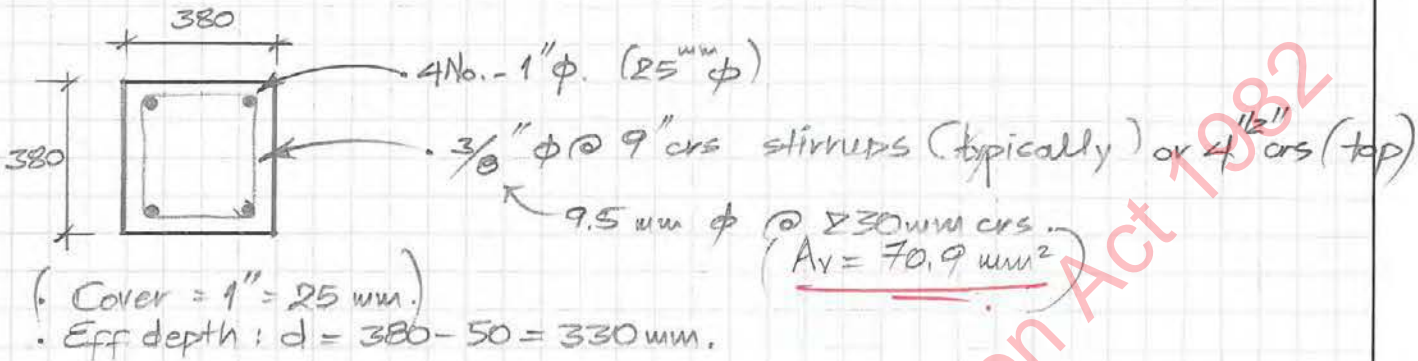 380
4No.- 1"φ. (25mmφ)
380
3/8"φ @ 9"crs stirrups (typically) or 4 1/2" crs (top)
9.5 mm φ @ 230mm crs.
(Av = 70.9 mm²)
(. Cover = 1" = 25 mm.)
. Eff depth : d = 380-50 = 330 mm.
on Act 1982